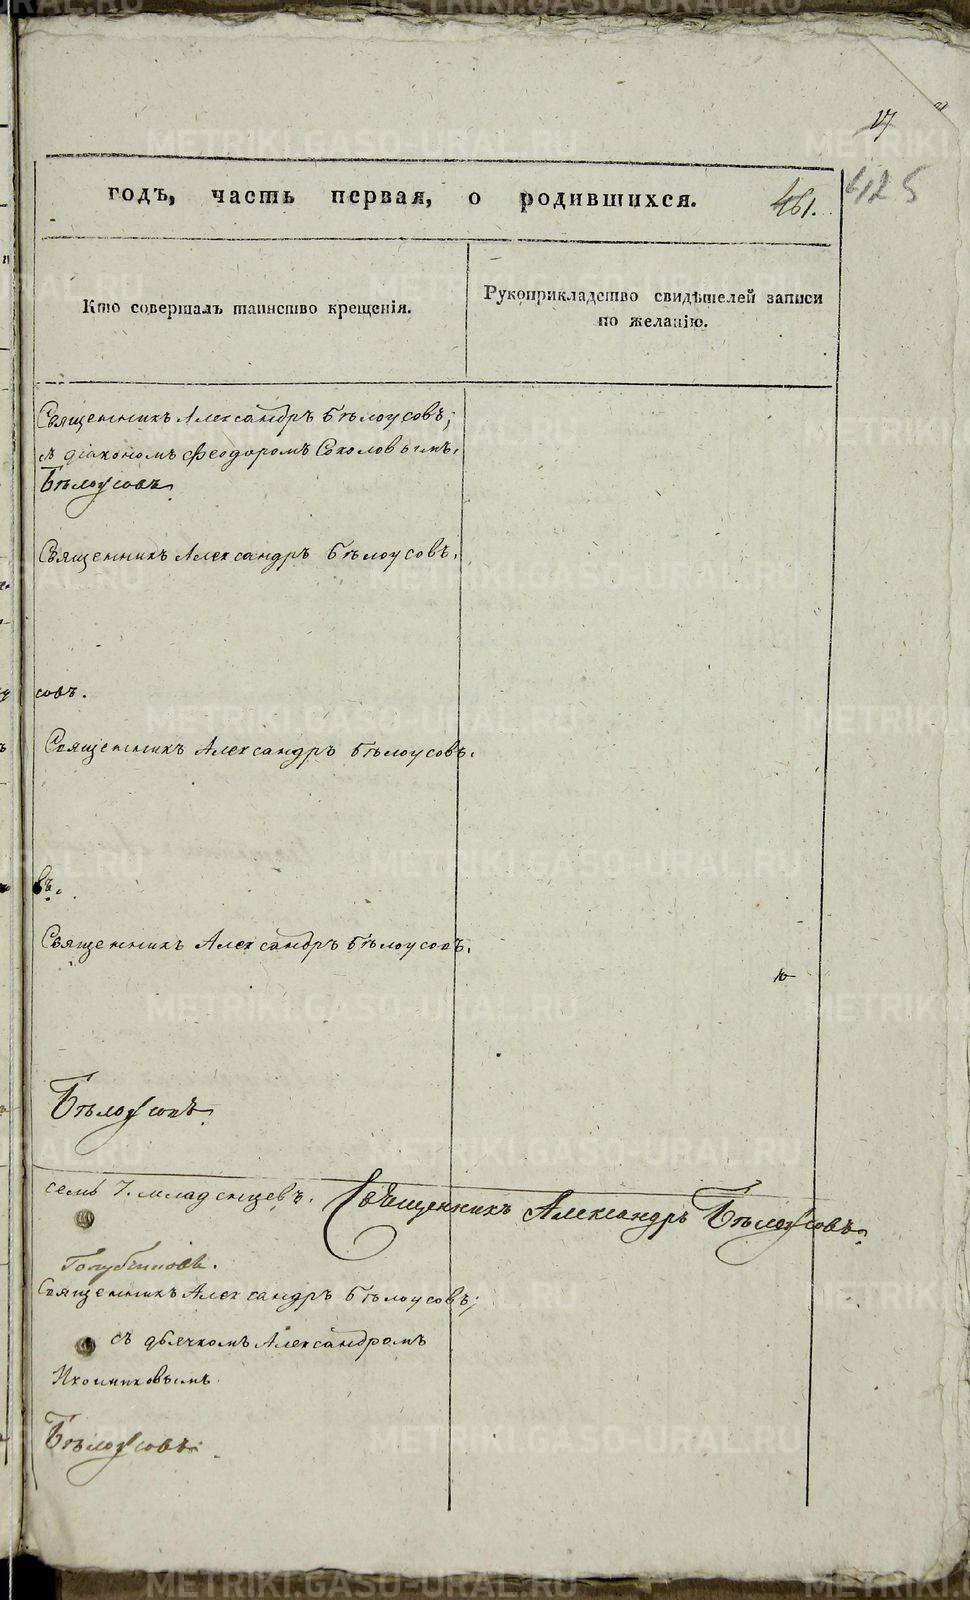 17
425
годъ, часть первая, о родившихся. 461.
Кто совершалъ таинство крещенія.
Рукоприкладство свидѣтелей записи
по желанію.
Священникъ Александръ Бѣлоусовъ;
съ діакономъ Феодоромъ Соколовымъ.
Бѣлоусовъ.
Священникъ Александръ Бѣлоусовъ.
совъ.
Священникъ Александръ Бѣлоусовъ.
въ.
Священникъ Александръ Бѣлоусовъ.
Бѣлоусовъ.
семь 7. младенцевъ. Священникъ Александръ Бѣлоусовъ.
Священникъ Александръ Бѣлоусовъ;
съ дьячкомъ Александромъ
Икомниковымъ
Бѣлоусовъ.
METRIKI.GASO-URAL.RU